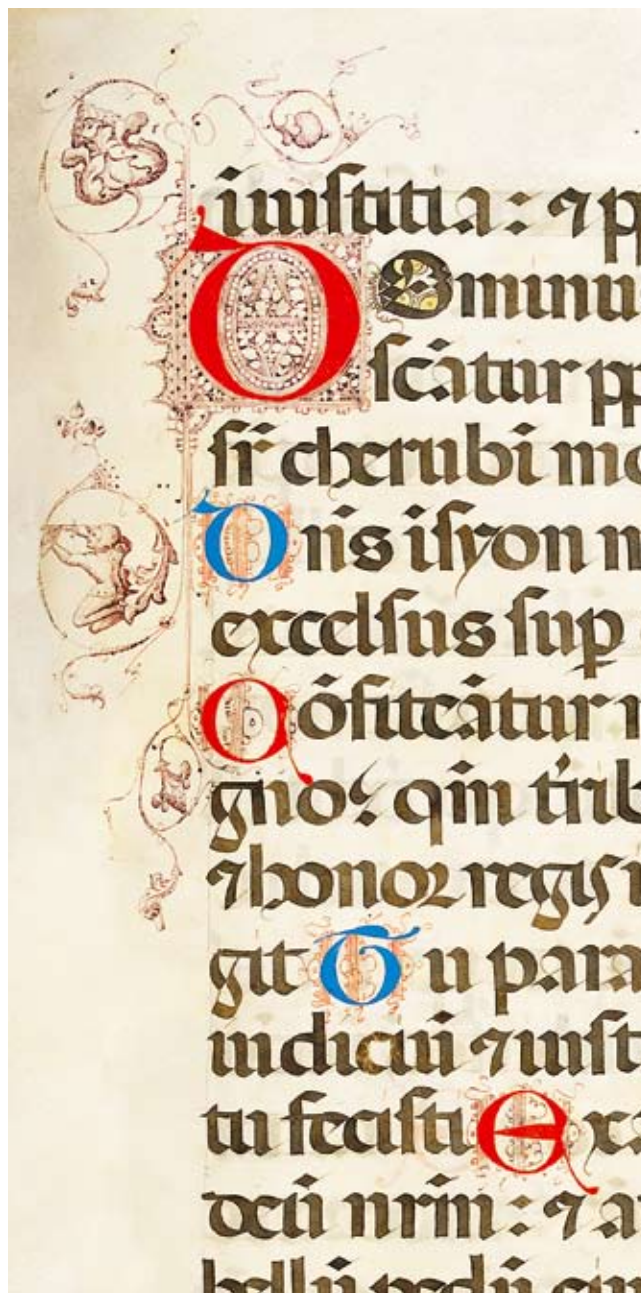 ī iuſtitia: ⁊ p
DOminu
ſcātur pp
ſr̄ cherubī mo
Dn̄s iſyon m
excelſus ſuꝑ
Cōfiteātur n
gno: qm̄ t'rib
⁊ honoꝛ regis i
git Tu para
iudiciū ⁊ iuſt
tu feciſti Exa
deū nr̄m: ⁊ a
bellū pedū eiu